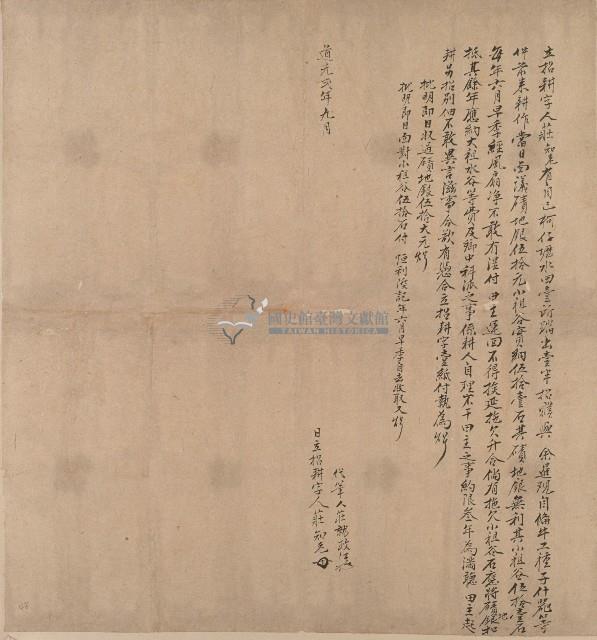 立招耕字人莊知老有自己柯仔壢水田壹所踏出壹半招彂與 余進觀自備牛工種子什器等
件前來耕作當日面議磧地銀伍拾元小租谷實納伍拾壹石其磧地銀無利其小租谷伍拾壹石
每年六月早季經風扇淨不敢冇湿付田主運回不得挨延拖欠升合倘有拖欠小租谷石應將磧地銀扣
抵其餘年應納大租水谷等費及鄉中科派之事係耕人自理不干田主之事約限叁年為滿聽 田主起
耕另招別佃不敢異言滋事合欲有憑合立招耕字壹紙付執為炤
批明即日收過磧地銀伍拾大元炤
批明即日面對小租谷伍拾石付 恒利號記年六月早季自去收取又炤
道光 年九月
代筆人莊
日立招耕字人莊知老
國史館臺灣文獻館
TAIWAN HISTORICA